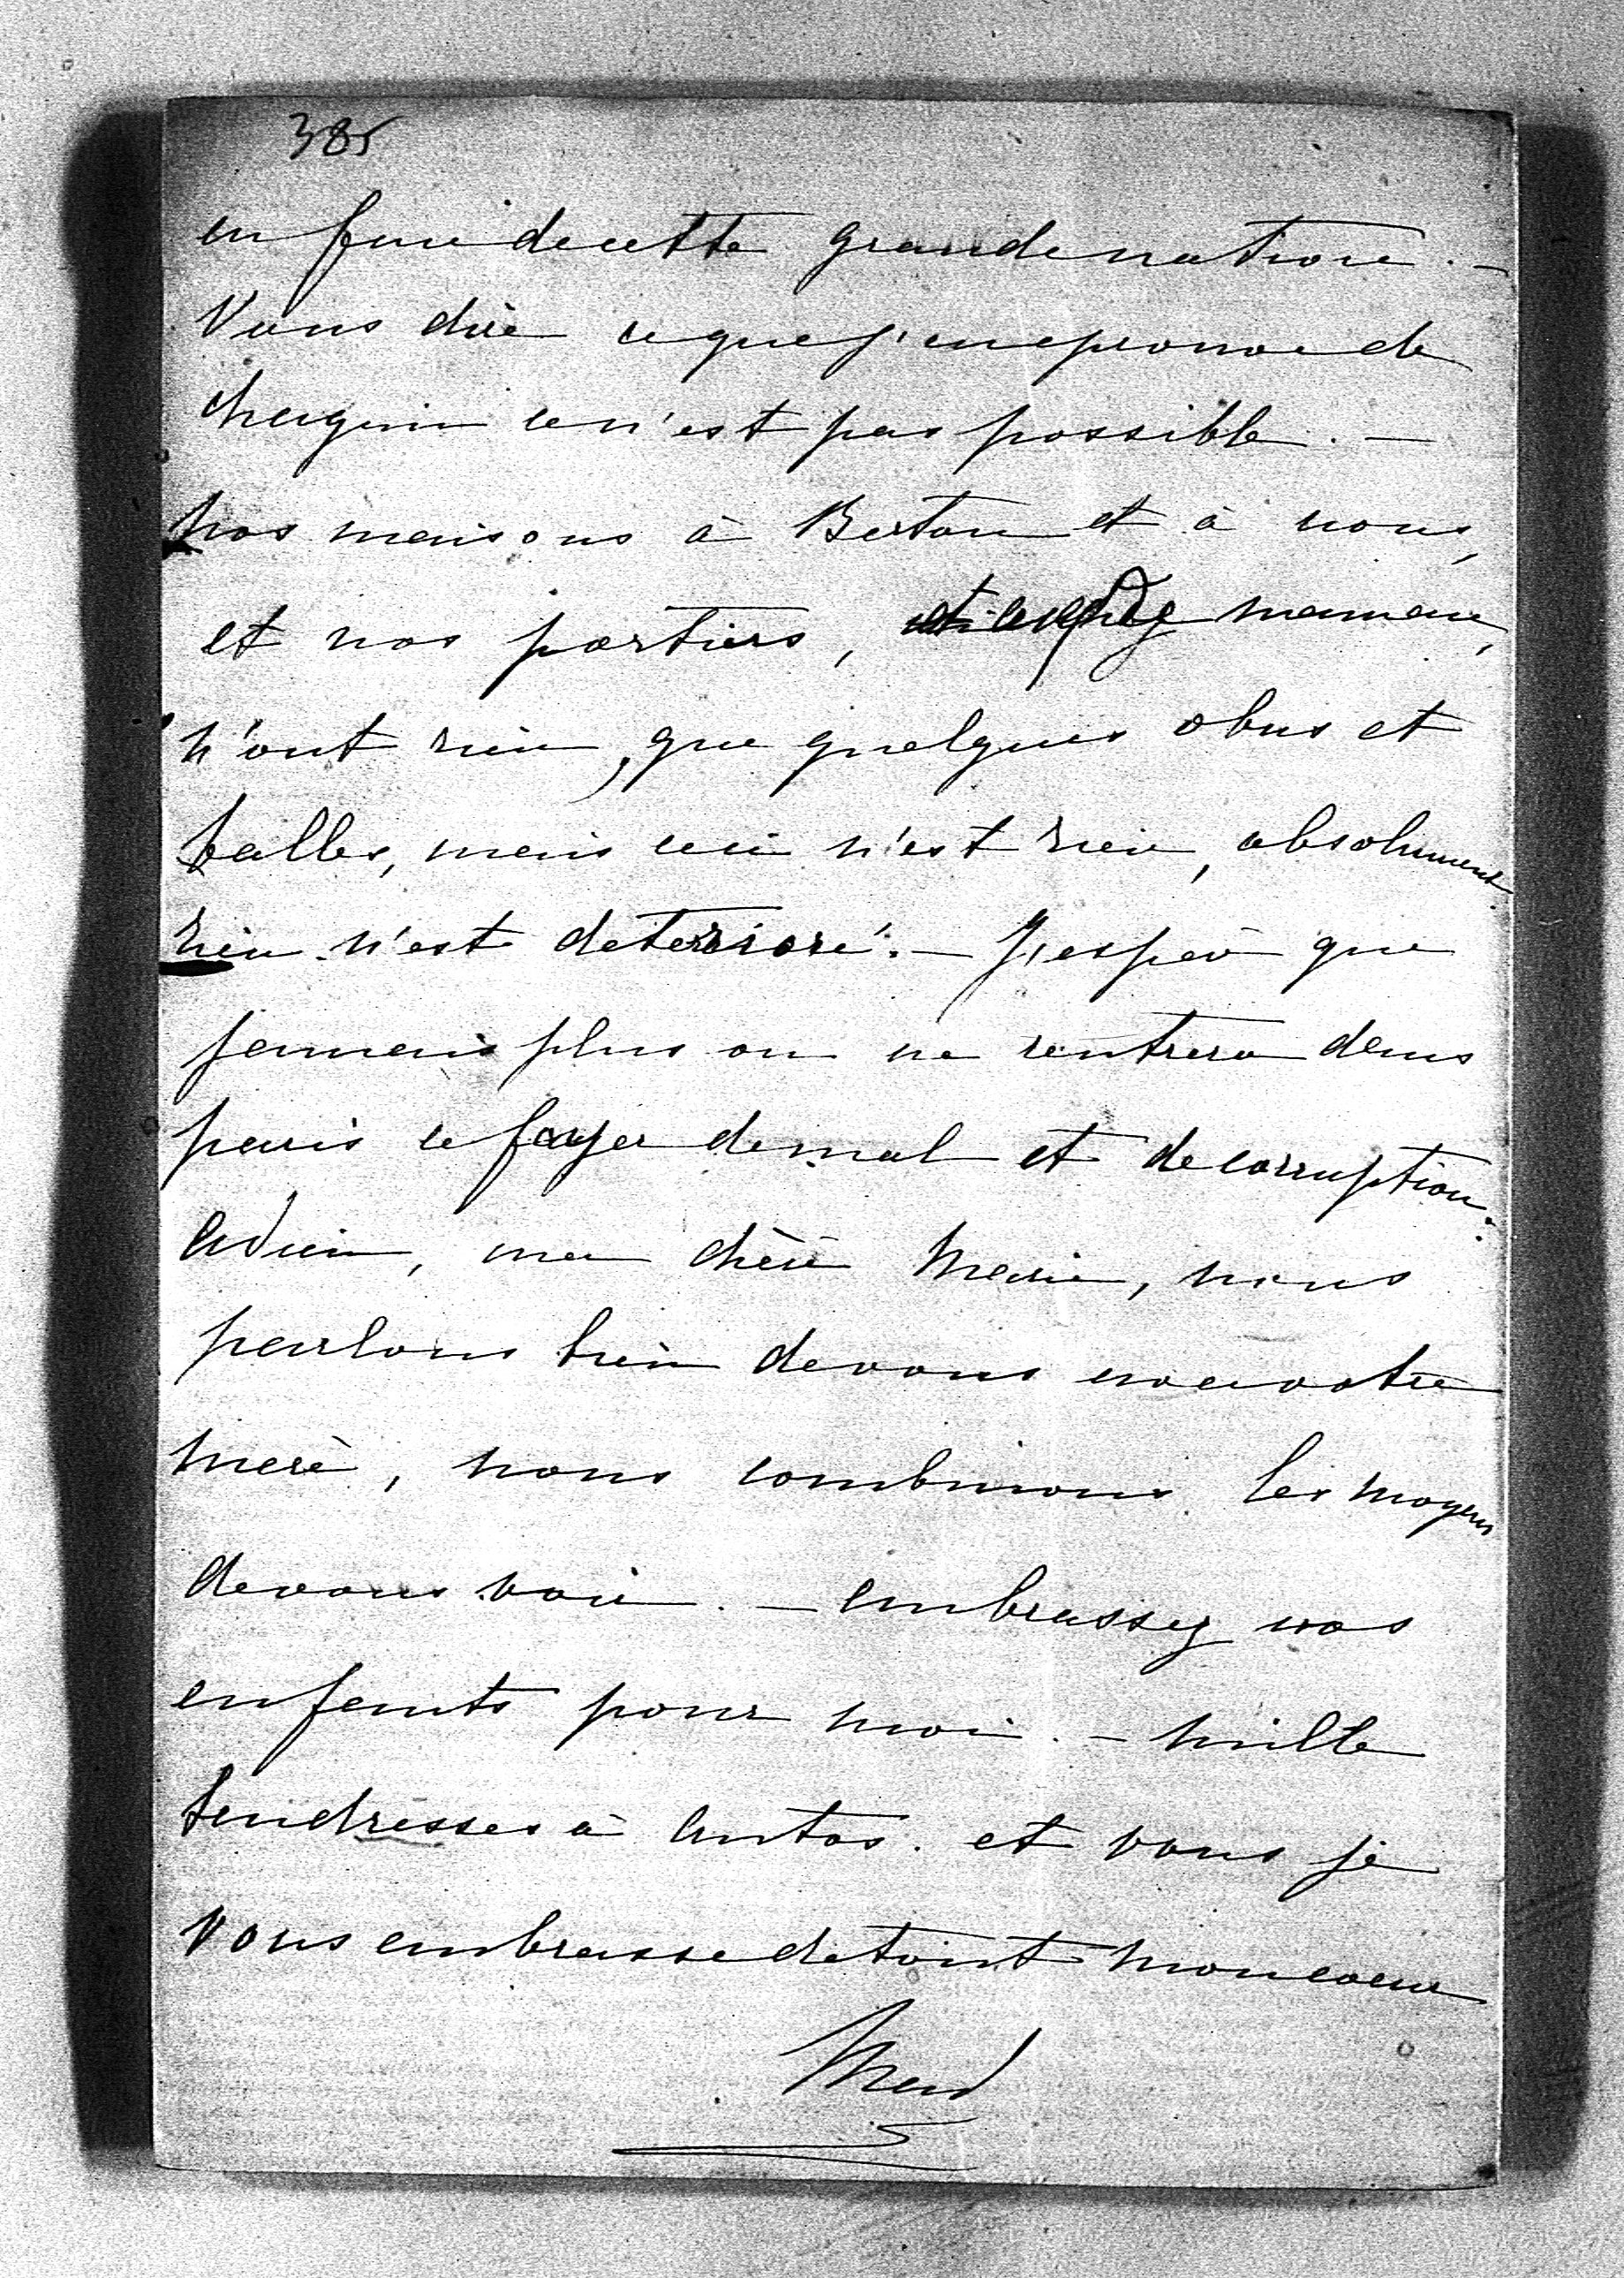 385
en face de cette grande nation. —
Vous dire ce que j'en eprouve de
chagrin ce n'est pas possible. —
nos maisons à Berton et à nous,
et nos portiers, maman,
n'ont rien, que quelques obus et
balles, mais ceci n'est rien, absolument
rien n'est deterrioré. — J'espèr que
jamais plus on ne rentrera dans
paris ce foyer de mal et de corruption.
adieu, ma chère Marie, nous
parlons bien de vous avec votre
merè, nous combinons les moyens
de vous voir. — embrassez vos
enfants pour moi. — mille
tendresses à Antos. et vous je
vous embrasse de tout mon coeur